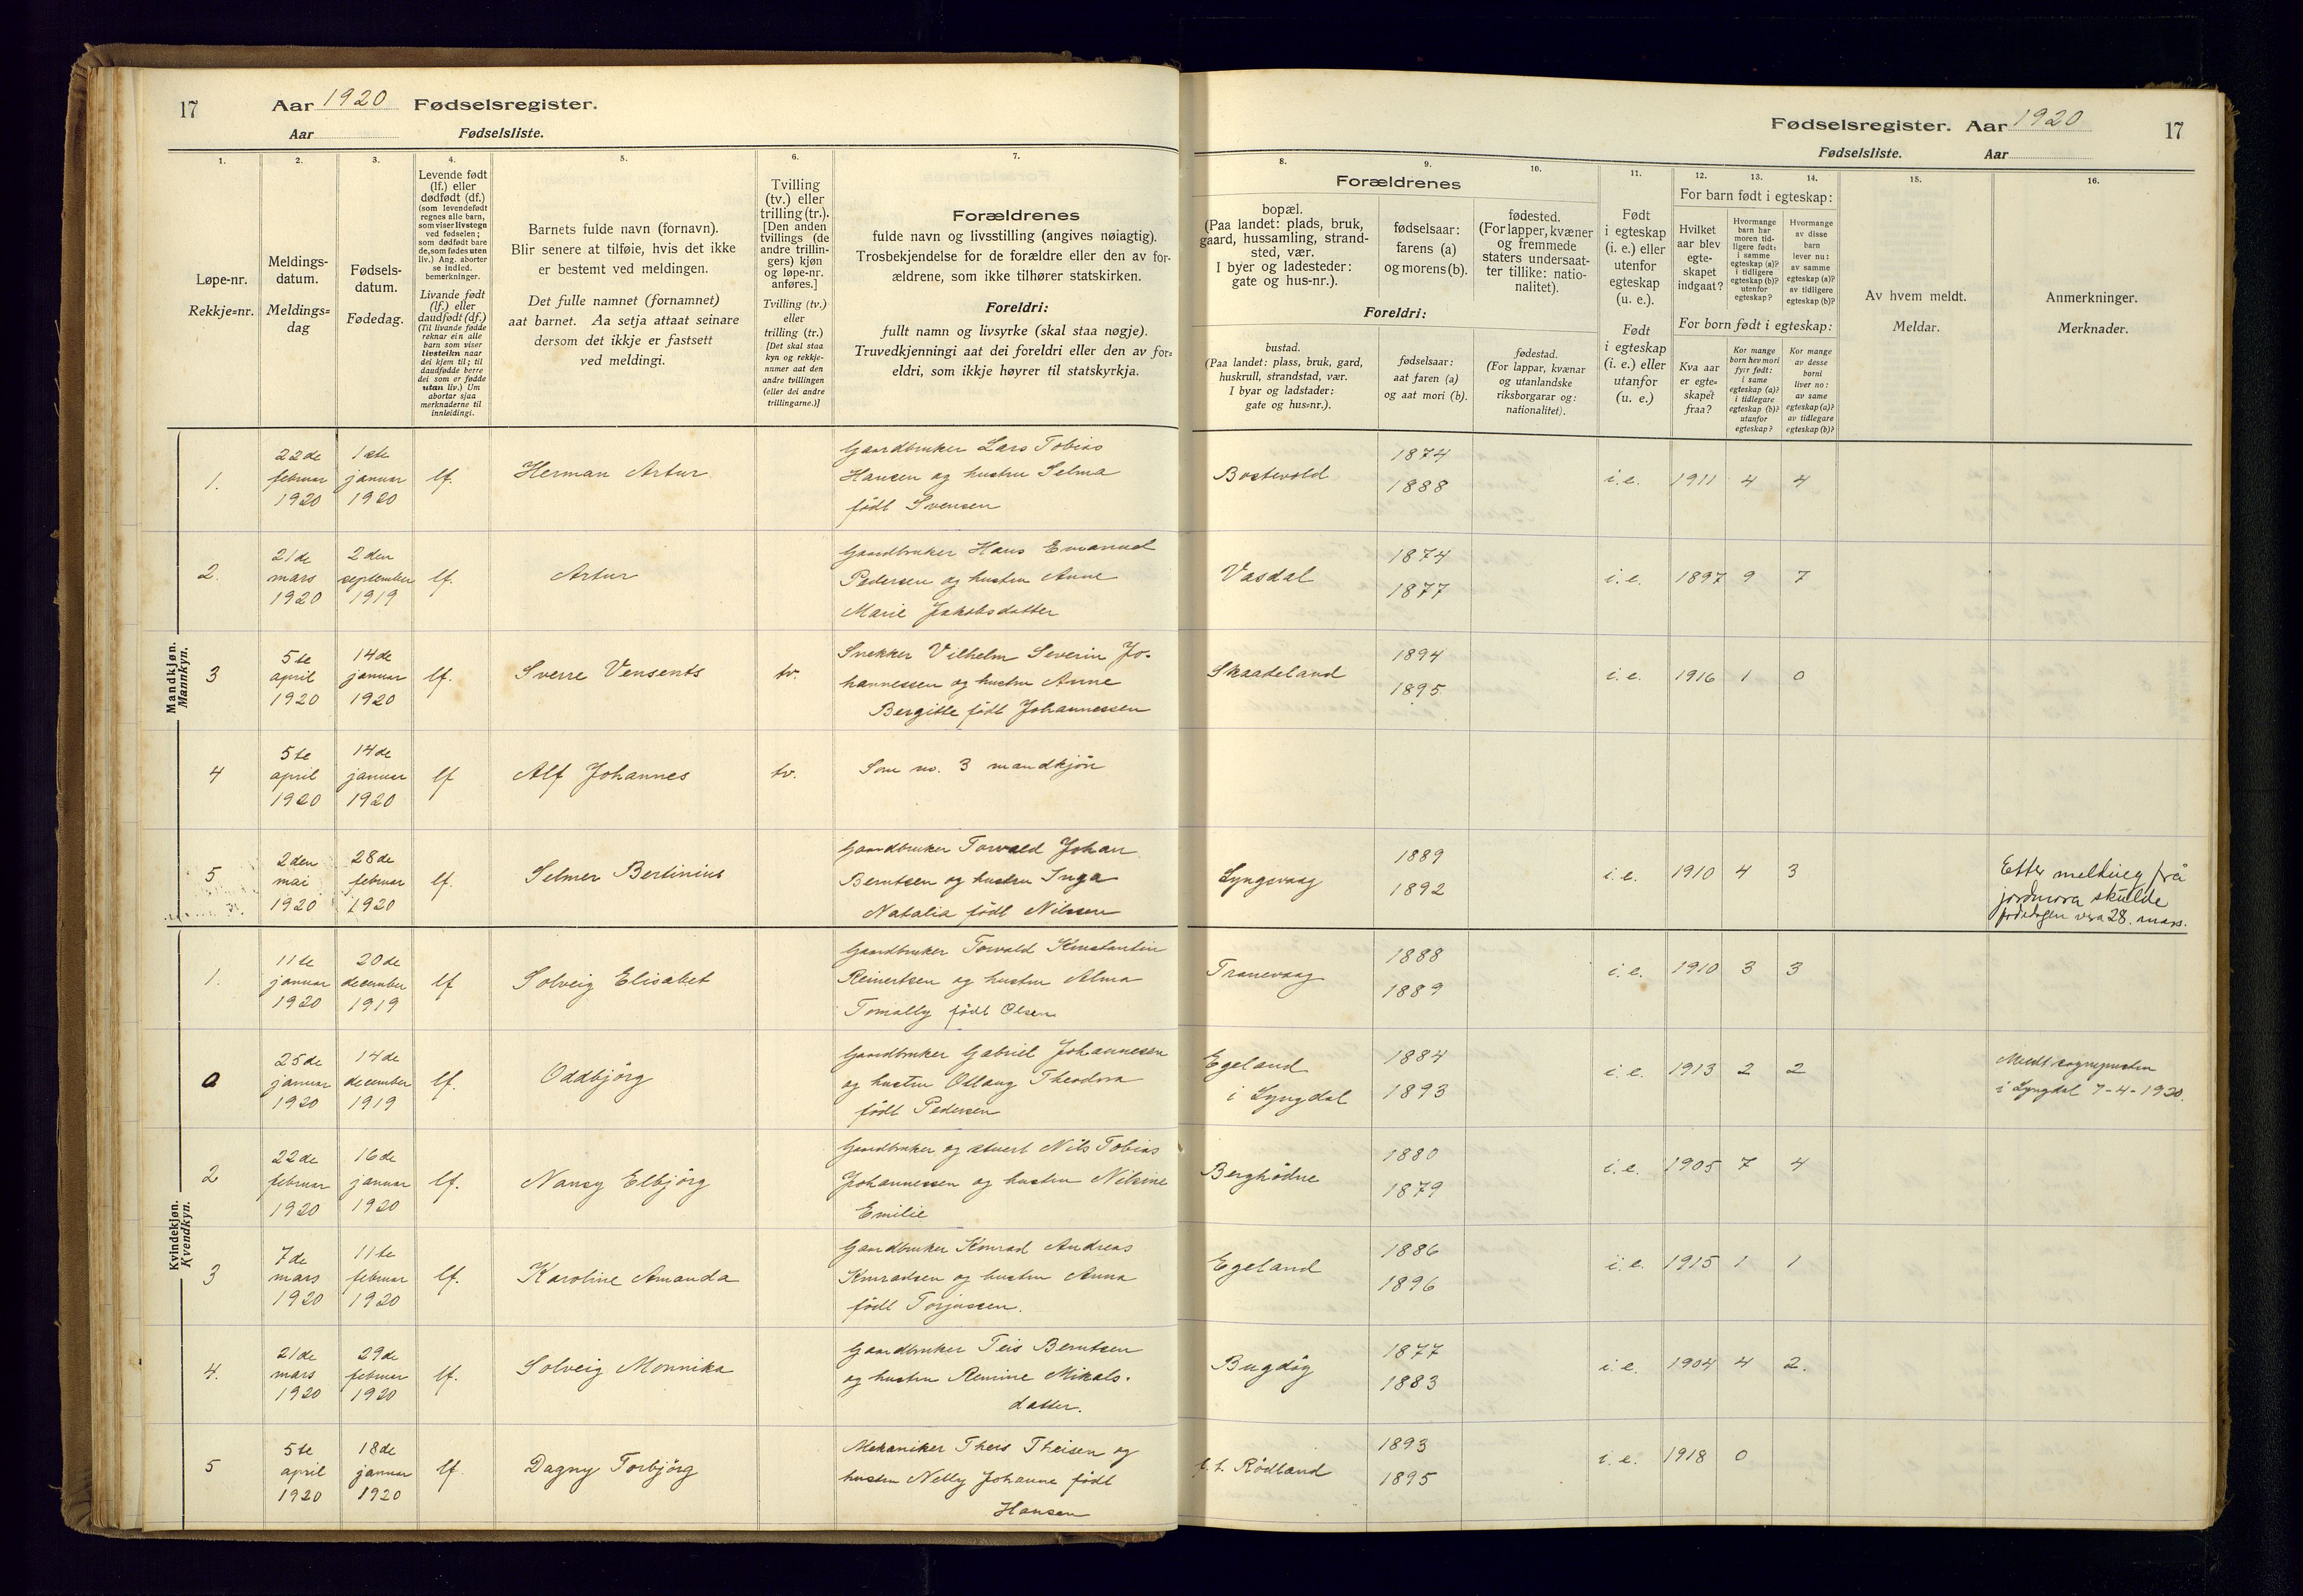 17 Aar 1920 Fødselsregister.
Aar Fødselsliste.
1. 2. 3. 4. 5. 6. 7.
Løpe-nr.
Rekkje=nr.
Meldings-
datum.
Meldings=
dag
Fødsels-
datum.
Fødedag.
Levende født
(lf.) eller
dødfødt (df.)
(som levendefødt
regnes alle barn,
som viser livstegn
ved fødselen;
som dødfødt bare
de, som fødes uten
liv.) Ang. aborter
se indled.
bemerkninger.
Livande født
(lf.) eller
daudfødt (df.)
(Til livande fødde
reknar ein alle
barn som viser
livsteikn naar
dei kjem til; til
daudfødde berre
dei som er fødde
utan liv.) Um
abortar sjaa
merknaderne til
innleidingi.
Barnets fulde navn (fornavn).
Blir senere at tilføie, hvis det ikke
er bestemt ved meldingen.
Det fulle namnet (fornamnet)
aat barnet. Aa setja attaat seinare
dersom det ikkje er fastsett
ved meldingi.
Tvilling
(tv.) eller
trilling (tr.).
[Den anden
tvillings (de
andre trillin-
gers) kjøn
og løpe-nr.
anføres.]
Tvilling (tv.)
eller
trilling (tr.)
[Det skal staa
kyn og rekkje-
numer aat den
andre tvillingen
(eller dei andre
trillingarne.)]
Forældrenes
fulde navn og livsstilling (angives nøiagtig).
Trosbekjendelse for de forældre eller den av for-
ældrene, som ikke tilhører statskirken.
Foreldri:
fullt namn og livsyrke (skal staa nøgje).
Truvedkjenningi aat dei foreldri eller den av for=
eldri, som ikkje høyrer til statskyrkja.
Mandkjøn.
Mannkyn.
1. 22de februar 1920 1ste januar 1920 lf. Herman Artur
Gaardbruker Lars Tobias
Hansen og hustru Selma
født Svensen
2. 21de mars 1920 2den september 1919 lf. Artur
Gaardbruker Hans Emanuel
Pedersen og hustru Anne
Marie Jakobsdatter
3 5te april 1920 14de januar 1920 lf. Sverre Vensents tv.
Snekker Vilhelm Severin Jo-
hannessen og hustru Anne
Bergitte født Johannessen
4 5te april 1920 14de januar 1920 lf Alf Johannes tv.
Som no. 3 mandkjön
5 2den mai 1920 28de februar 1920 lf. Selmer Bertinius
Gaardbruker Torvald Johan
Berntsen og hustru Inga
Natalia født Nilssen
Kvindekjøn.
Kvendkyn.
1. 11te januar 1920 20de december 1919 lf Solveig Elisabet
Gaardbruker Torvald Konstantin
Reinertsen og hustru Alma
Tomally født Olsen
0 25de januar 1920 14de december 1919 lf. Oddbjörg
Gaardbruker Gabriel Johannesen
og hustru Otlaug Theodora
født Pedersen
2 22de februar 1920 16de januar 1920 lf. Nancy Elbjörg
Gaardbruker og stuert Nils Tobias
Johannessen og hustru Nilsine
Emilie
3 7de mars 1920 11te februar 1920 lf. Karoline Amanda
Gaardbruker Konrad Andreas
Konradsen og hustru Anna
født Torjussen.
4. 21de mars 1920 29de februar 1920 lf. Solveig Monnika
Gaardbruker Teis Berntsen
og hustru Remine Mikals-
datter.
5 5te april 1920 18de januar 1920 lf. Dagny Torbjörg
Mekaniker Theis Theisen og
hustru Nelly Johanne født
Hansen
Fødselsregister. Aar 1920 17
Fødselsliste. Aar
8. 9. 10. 11. 12. 13. 14. 15. 16.
Forældrenes
bopæl.
(Paa landet: plads, bruk,
gaard, hussamling, strand-
sted, vær.
I byer og ladesteder:
gate og hus-nr.).
fødselsaar:
farens (a)
og morens (b).
fødested.
(For lapper, kvæner
og fremmede
staters undersaat-
ter tillike: natio-
nalitet).
Foreldri:
bustad.
(Paa landet: plass, bruk, gard,
huskrull, strandstad, vær.
I byar og ladstader:
gate og hus=nr.).
fødselsaar:
aat faren (a)
og aat mori (b).
fødestad.
(For lappar, kvænar
og utanlandske
riksborgarar og:
nationalitet).
Født
i egteskap
(i. e.) eller
utenfor
egteskap
(u. e.).
Født
i egteskap
(i. e.) eller
utanfor
(u. e.)
For barn født i egteskap:
Hvilket
aar blev
egte-
skapet
indgaat?
Hvormange
barn har
moren tid-
ligere født:
i samme
egteskap (a)?
i tidligere
egteskap (b)?
utenfor
egteskap?
Hvormange
av disse
barn
lever nu:
av samme
egteskap (a)?
av tidligere
egteskap (b)?
For born født i egteskap:
Kva aar
er egte=
skapet
fraa?
Kor mange
born hev mori
fyrr født:
i same
egteskap (a)?
i tidlegare
egteskap (b)?
utanfor
egteskap?
Kor mange
av desse
borni
liver no:
av same
egteskap (a)?
av tidlegare
egteskap (b)?
Av hvem meldt.
Meldar.
Anmerkninger.
Merknader.
Bostevold 1874 1888 i.e. 1911 4 4
Vasdal 1874 1877 i.e. 1897 9 7
Skaadeland 1894 1895 i.e. 1916 1 0
Lyngsvaag 1889 1892 i.e. 1910 4 3
Etter melding frå
jordmora skulde
fødedagen vera 28. mars.
Tranevaag 1888 1889 i.e. 1910 3 3
Egeland
i Lyngdal 1884 1893 i.e. 1913 2 2
Meldt sognepresten
i Lyngdal 7-4-1920.
Berghödne 1880 1879 i.e. 1905 7 4
Egeland 1886 1896 i.e. 1915 1 1
Bugdöy 1877 1883 i.e. 1904 4 2.
Rödland 1893 1895 i.e. 1918 0